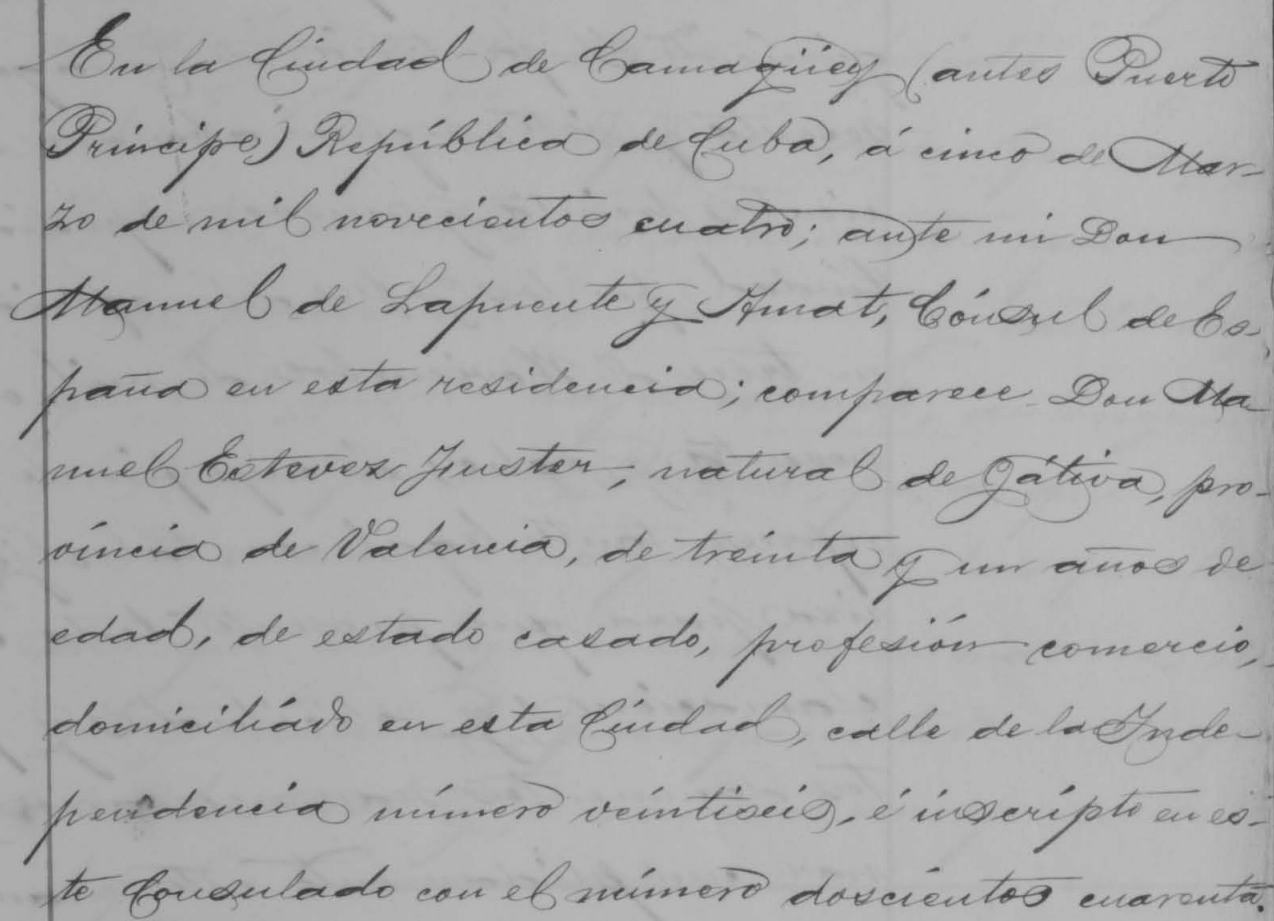 En la Ciudad de Camagüey (antes Puerto
Príncipe) República de Cuba, á cinco de Mar-
zo de mil novecientos cuatro; ante mi Don
Manuel de Lapuente y Amat, Cónsul de Es-
paña en esta residencia; comparece Don Ma
nuel Estevez Fuster, natural de Játiva, pro-
vincia de Valencia, de treinta y un años de
edad, de estado casado, profesión comercio,
domiciliádo en esta Ciudad, calle de la Inde-
pendencia número veintiseis, é inscripto en es-
te Consulado con el número doscientos cuarenta.